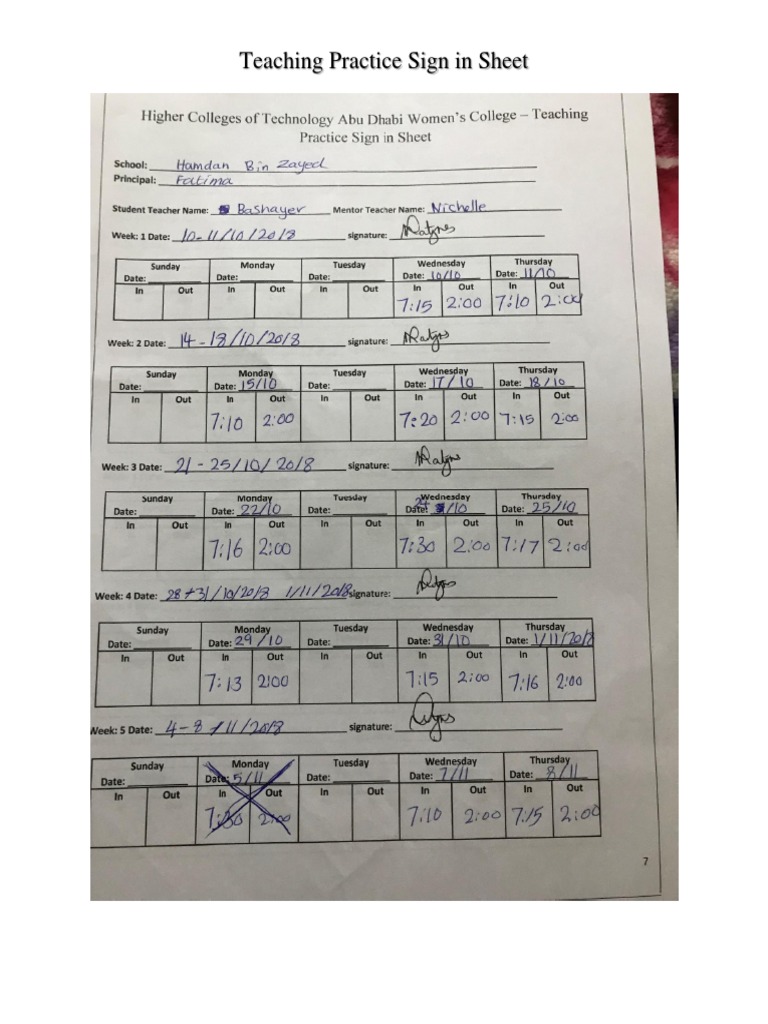 Teaching Practice Sign in Sheet
Higher Colleges of Technology Abu Dhabi Women's College – Teaching
Practice Sign in Sheet
School: Hamdan Bin Zayed
Principal: Fatima
Student Teacher Name: Bashayer Mentor Teacher Name: Nichelle
Week: 1 Date: 10-11/10/2018 signature:
Sunday Monday Tuesday Wednesday Thursday
Date: Date: Date: Date: 10/10 Date: 11/10
In Out In Out In Out In Out In Out
7:15 2:00 7:10 2:00
Week: 2 Date: 14-18/10/2018 signature:
Sunday Monday Tuesday Wednesday Thursday
Date: Date: 15/10 Date: Date: 17/10 Date: 18/10
In Out In Out In Out In Out In Out
7:10 2:00 7:20 2:00 7:15 2:00
Week: 3 Date: 21-25/10/2018 signature:
Sunday Monday Tuesday Wednesday Thursday
Date: Date: 22/10 Date: Date: 24/10 Date: 25/10
In Out In Out In Out In Out In Out
7:16 2:00 7:30 2:00 7:17 2:00
Week: 4 Date: 28+31/10/2018 1/11/2018 signature:
Sunday Monday Tuesday Wednesday Thursday
Date: Date: 29/10 Date: Date: 31/10 Date: 1/11/2018
In Out In Out In Out In Out In Out
7:13 2:00 7:15 2:00 7:16 2:00
Week: 5 Date: 4-8/11/2018 signature:
Sunday Monday Tuesday Wednesday Thursday
Date: Date: 5/11 Date: Date: 7/11 Date: 8/11
In Out In Out In Out In Out In Out
7:30 2:00 7:10 2:00 7:15 2:00
7